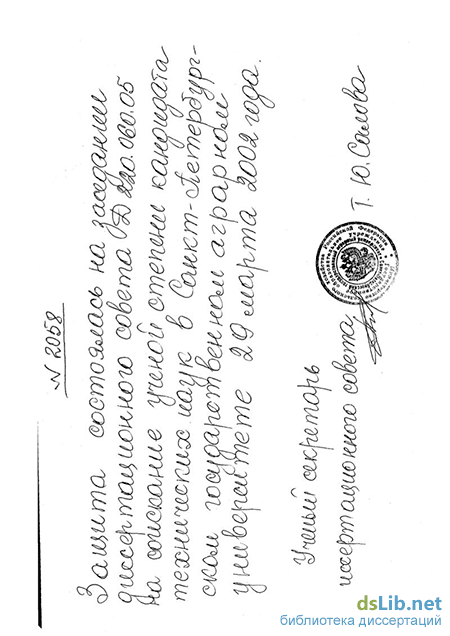 N 2058
Защита состоялась на заседании
диссертационного совета Д 220.060.05
на соискание ученой степени кандидата
технических наук в Санкт-Петербург-
ском государственном аграрном
университете 29 марта 2002 года.
Ученый секретарь
иссертационного совета
Т. Ю. Салова
Российской Федерации
dsLib.net
библиотека диссертаций